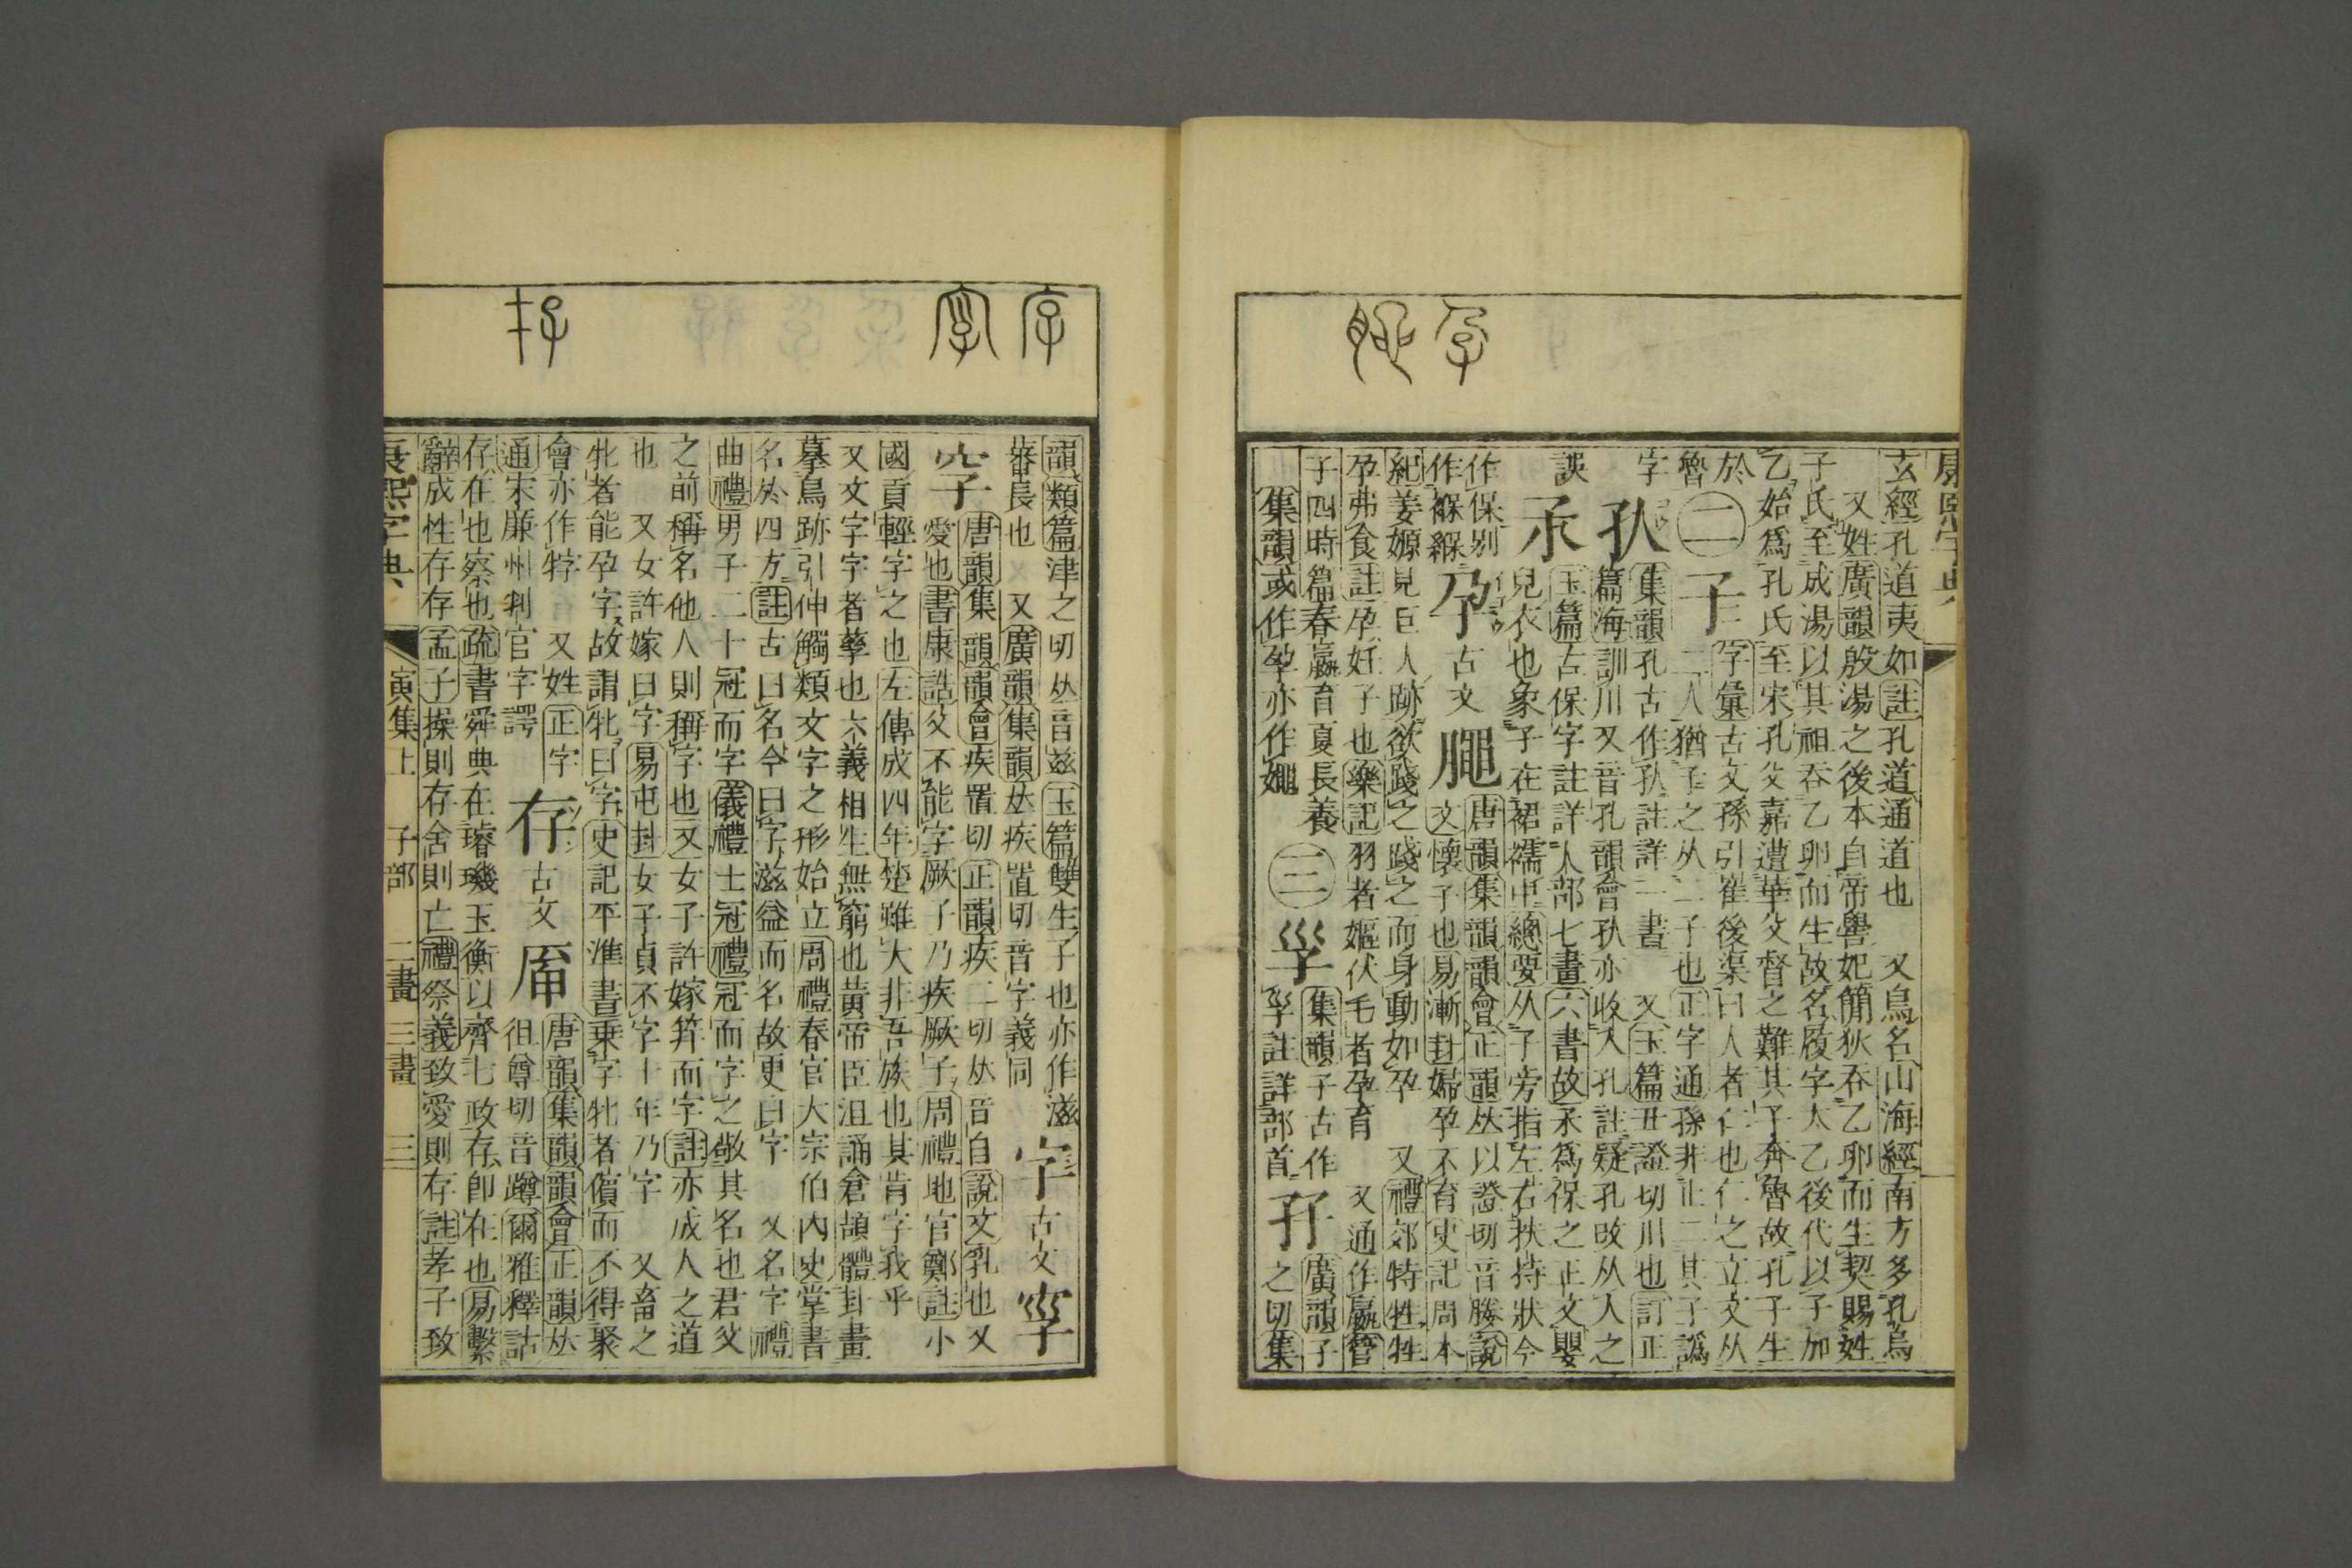 康熙字典
玄經孔道夷如註孔道通道也 又鳥名山海經南方多孔鳥
又姓廣韻殷湯之後本自帝嚳妃簡狄吞乙卵而生契賜姓
子氏至成湯以其祖吞乙卵而生故名履字太乙後代以子加
乙始爲孔氏至宋孔父嘉遭華父督之難其子奔魯故孔子生
於魯
二
字彙古文孫引崔後渠曰人者仁也仁之立文从
二人猶子之从二子也正字通孫非止二其子譌
字
集韻孔古作 註詳一畫 又玉篇丑證切川也訂正
篇海訓川又音孔韻會 亦收入孔註疑孔改从人之
誤
玉篇古保字註詳人部七畫 六書故 爲保之正文嬰
兒衣也象子在裙襦中總要从子旁指左右扶持狀今
作保别
作褓緥
孕 古文
唐韻集韻韻會正韻𠀤以證切音媵說
文懷子也易漸卦婦孕不育史記周本
紀姜嫄見巨人跡欲踐之踐之而身動如孕 又禮郊特牲牲
孕弗食註孕妊子也樂記羽者嫗伏毛者孕育 又通作 管
子四時篇春嬴育夏長養
集韻或作孕亦作
三 㜽 集韻子古作
㜽註詳部首
孖 廣韻子
之切集
韻類篇津之切𠀤音兹玉篇雙生子也亦作滋
蕃長也 又廣韻集韻𠀤疾置切音字義同
字 古文
唐韻集韻韻會疾置切正韻疾二切𠀤音自說文乳也又
愛也書康誥父不能字厥子乃疾厥子周禮地官鄭註小
國貢輕字之也左傳成四年楚雖大非吾族也其肯字我乎
又文字字者孳也六義相生無窮也黃帝臣沮誦倉頡體卦畫
摹鳥跡引伸觸類文字之形始立周禮春官大宗伯內史掌書
名於四方註古曰名今曰字滋益而名故更曰字 又名字禮
曲禮男子二十冠而字儀禮士冠禮冠而字之敬其名也君父
之前稱名他人則稱字也又女子許嫁筓而字註亦成人之道
也 又女許嫁曰字易屯卦女子貞不字十年乃字 又畜之
牝者能孕字故謂牝曰字史記平準書乗字牝者儐而不得聚
會亦作牸 又姓正字
通宋廉州判官字諤
存 古文
唐韻集韻韻會正韻𠀤
徂尊切音蹲爾雅釋詁
存在也察也疏書舜典在璿璣玉衡以齊七政存卽在也易繫
辭成性存存孟子操則存舍則亡禮祭義致愛則存註孝子致
康熙字典 寅集上 子部 二畫 三畫 三